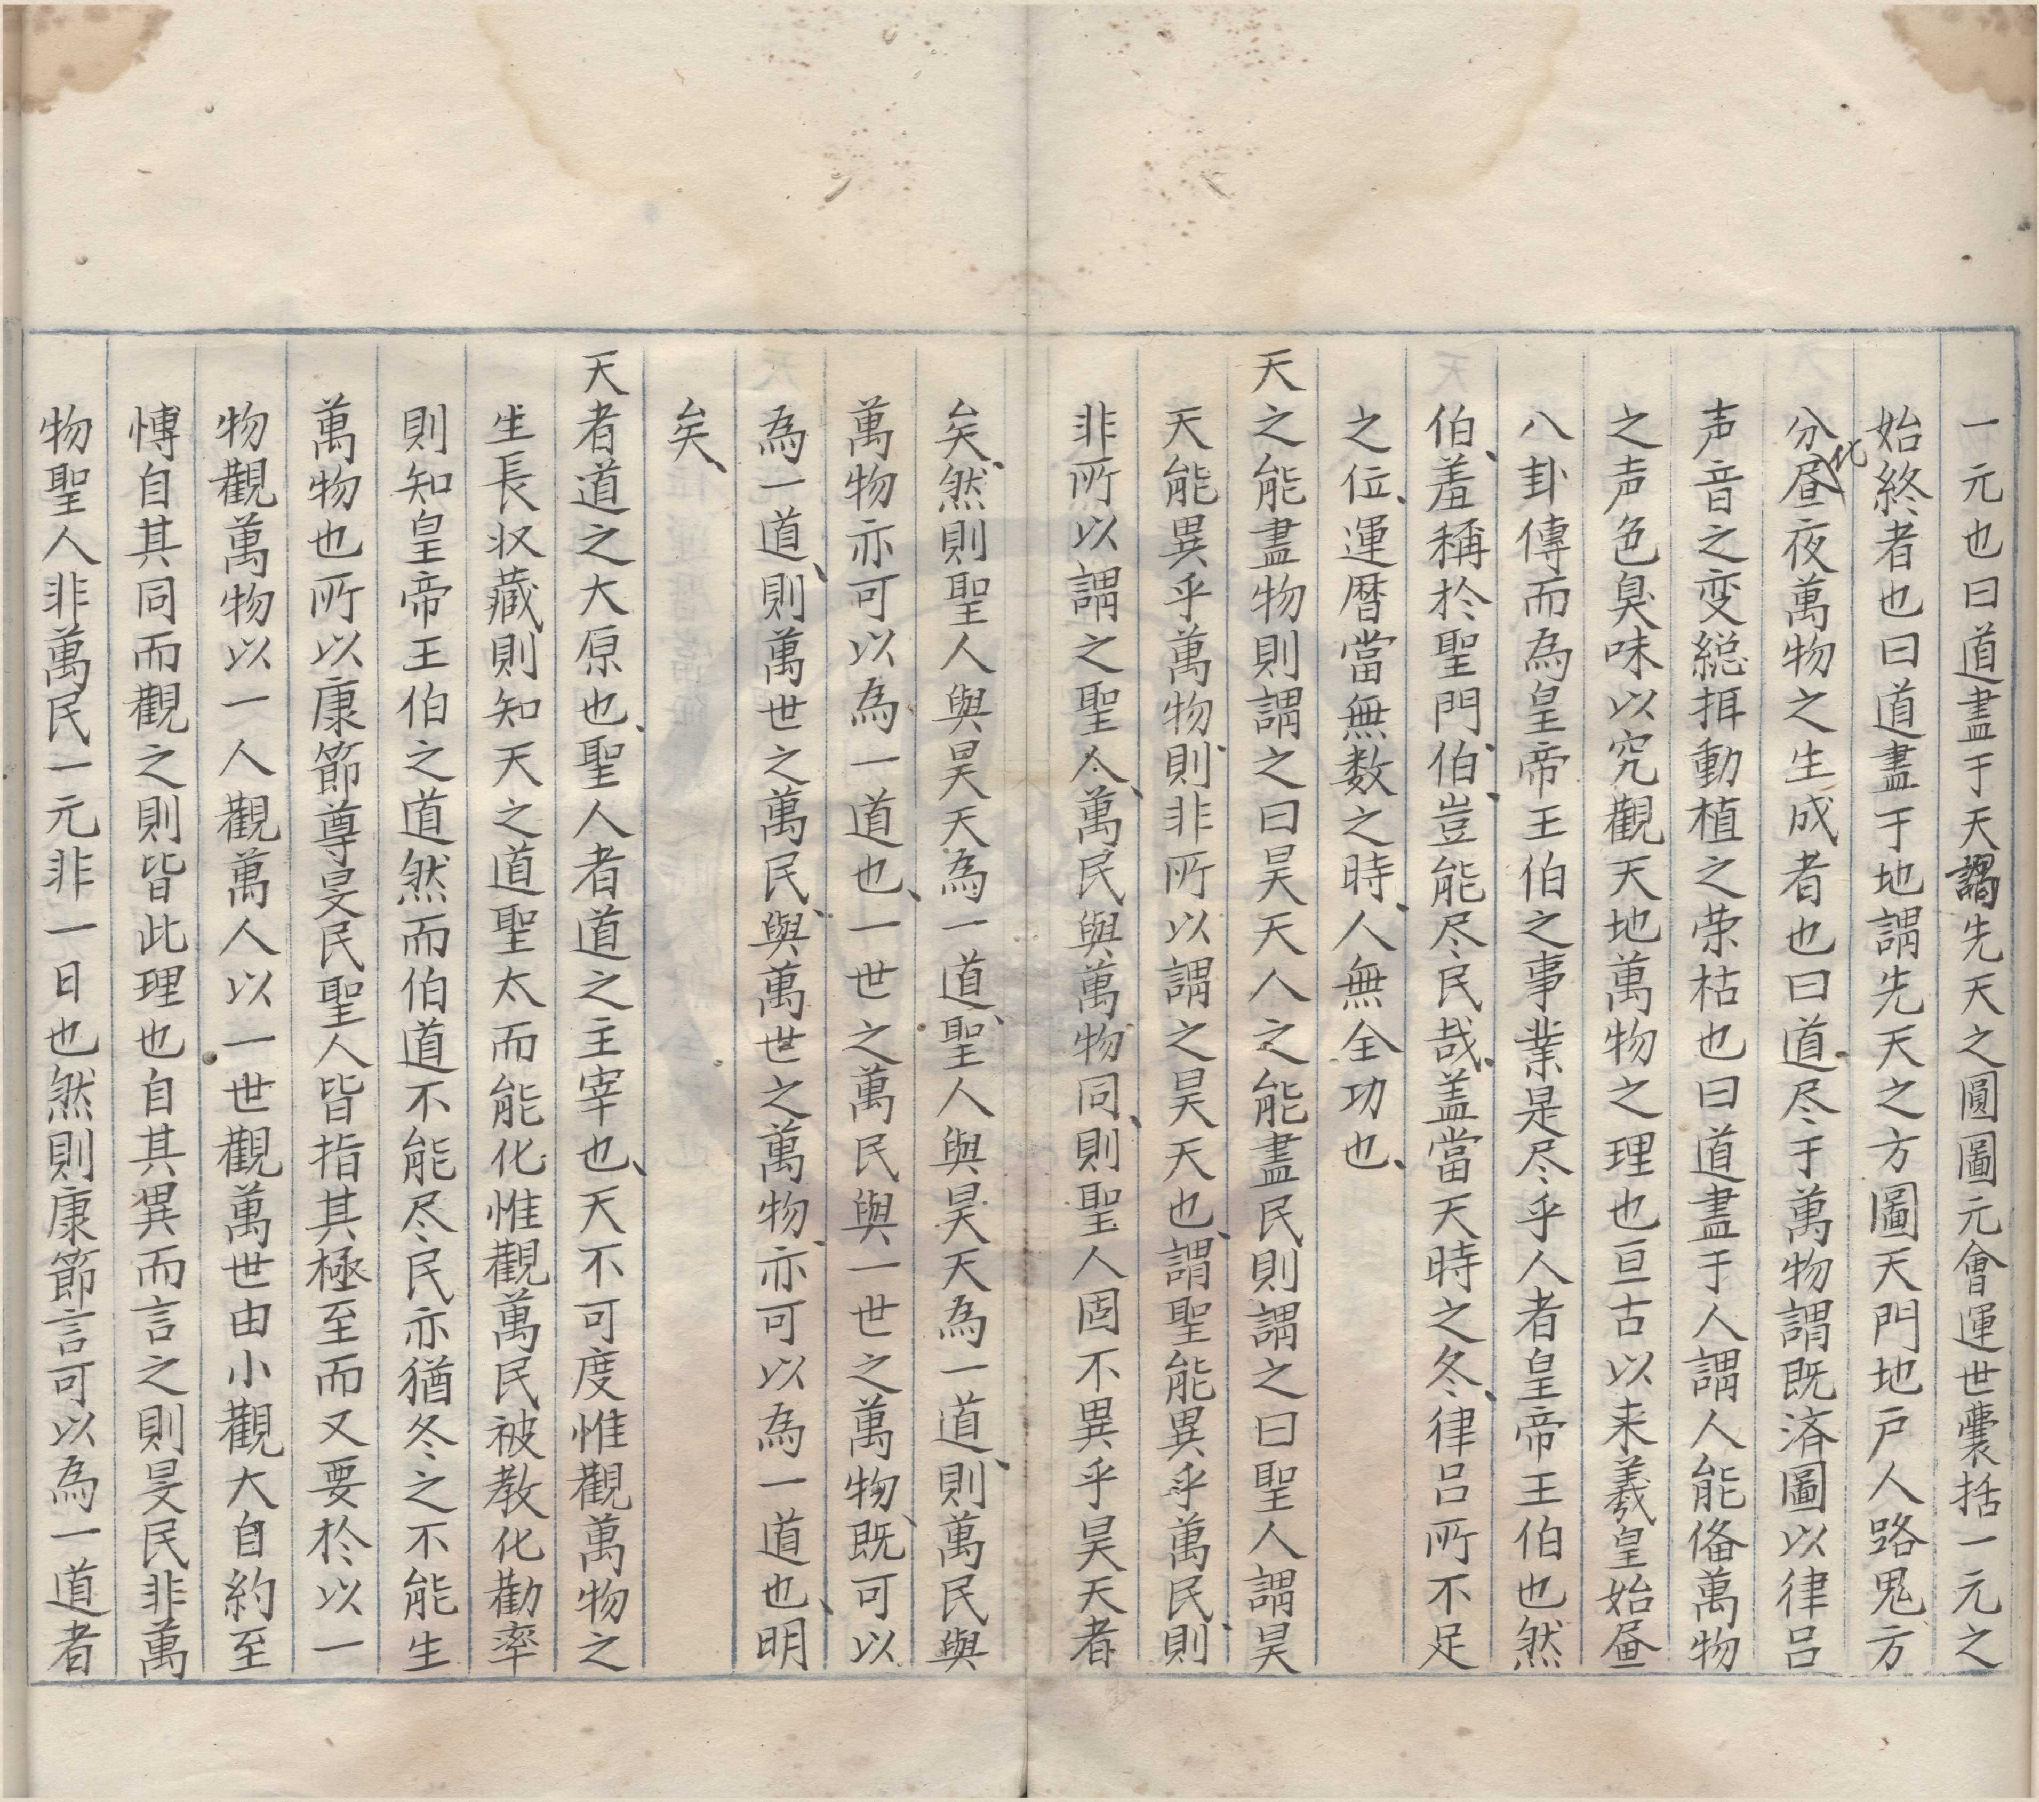 一元也曰道盡于天謂先天之圓圖元會運世囊括一元之
始終者也曰道盡于地謂先天之方圖天門地户人路鬼方
分化昼夜萬物之生成者也曰道尽于萬物謂既済圖以律呂
声音之变総揖動植之荣枯也曰道盡于人謂人能俻萬物
之声色臭味以究觀天地萬物之理也亘古以来羲皇始畫
八卦傳而為皇帝王伯之事業是尽乎人者皇帝王伯也然
伯、羞稱於聖門、伯、豈能尽民哉、盖當天時之冬、律呂所不足
之位、運暦當無数之時、人無全功也、
天之能盡物則謂之曰昊天人之能盡民則謂之曰聖人謂昊
天能異乎萬物、則非所以謂之昊天也、謂聖能異乎萬民、則
非所以謂之聖人、萬民與萬物同、則聖人固不異乎昊天者
矣、然則聖人與昊天為一道、聖人與昊天為一道、則萬民與
萬物亦可以為一道也、一世之萬民與一世之萬物、既可以
為一道、則萬世之萬民、與萬世之萬物、亦可以為一道也、明
矣、
天者道之大原也、聖人者道之主宰也、天不可度惟觀萬物之
生長収藏則知天之道聖太而能化惟觀萬民被教化勸率
則知皇帝王伯之道然而伯道不能尽民亦猶冬之不能生
萬物也所以康節尊旻民聖人皆指其極至而又要於以一
物觀萬物以一人觀萬人以一世觀萬世由小觀大自約至
博自其同而觀之則皆此理也自其異而言之則旻民非萬
物聖人非萬民一元非一日也然則康節言可以為一道者